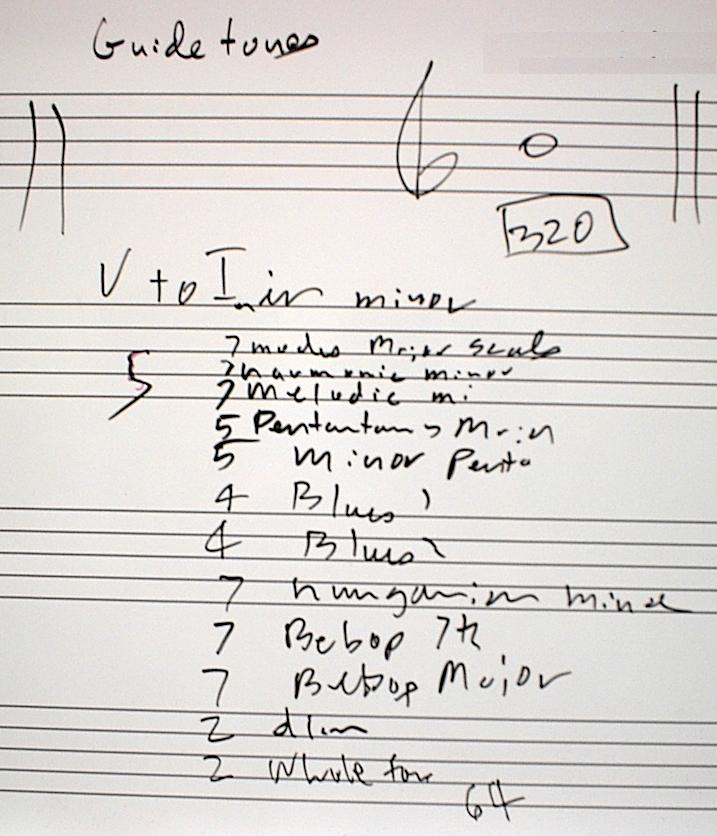 Guide tones
320
V to I in minor
7 modes Major scale
7 harmonic minor
5
7 Melodic mi
5 Pentatonics Major
5 minor Penta
4 Blues
4 Blues
7 hungarian minor
7 Bebop 7th
7 Bebop Major
2 dim
2 Whole tone
64